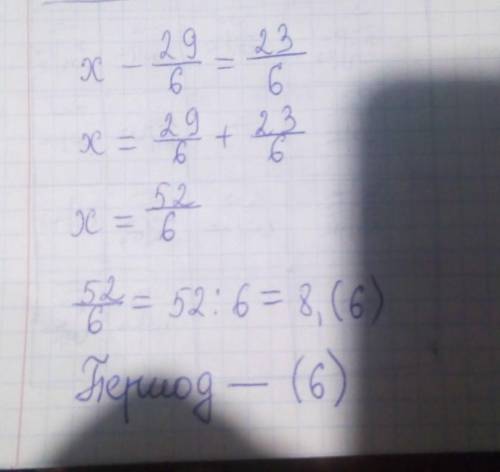 x - 29/6 = 23/6
x = 29/6 + 23/6
x = 52/6
52/6 = 52 : 6 = 8,(6)
Период — (6)